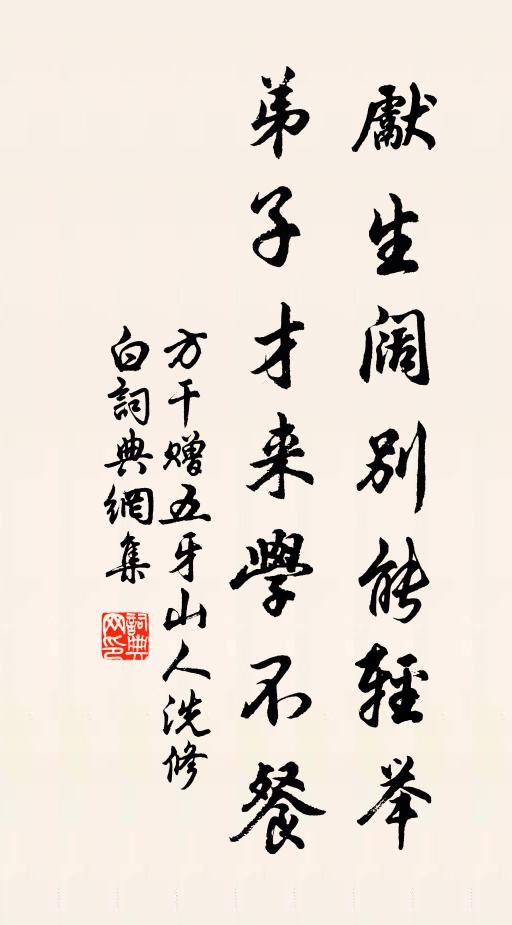 獻生阔别能輕举
弟子才来學不餐
方干赠五牙山人洗修
白詞典網集
詞典网印